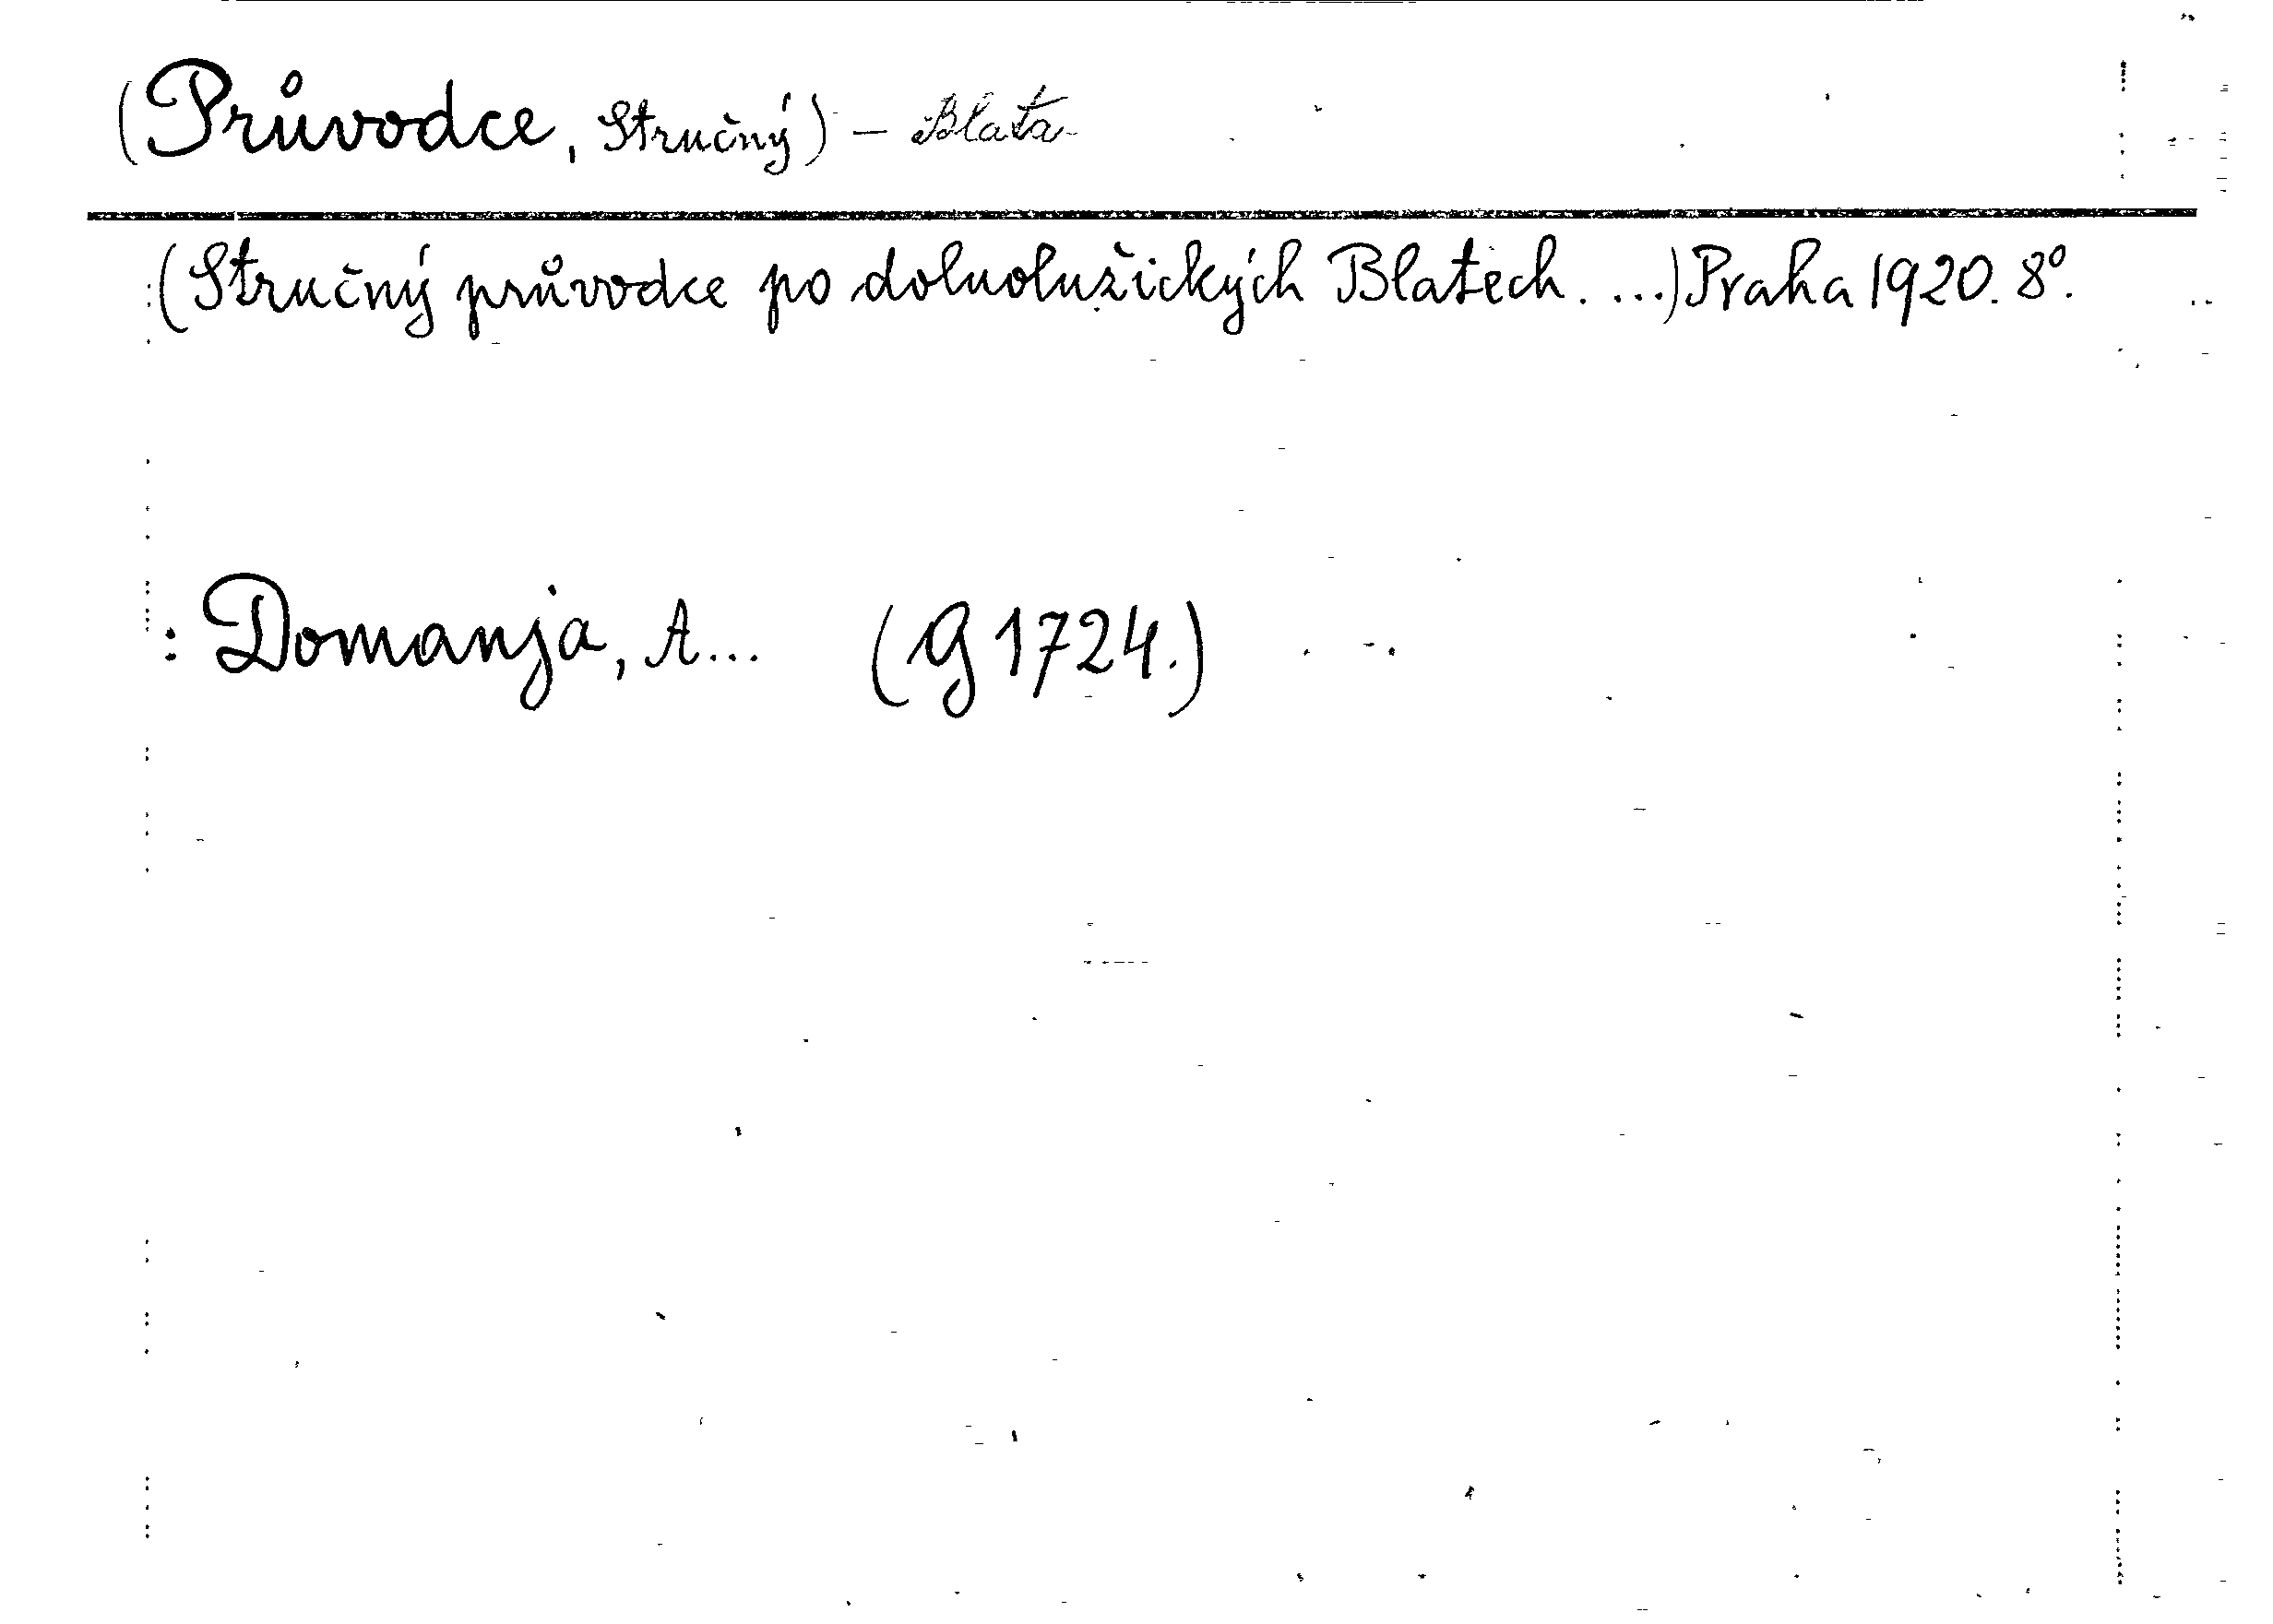 (Průvodce, Stručný) – Blata
(Stručný průvodce po dolnolužických Blatech. ...) Praha 1920. 8°.
: Domanja, A... (G 1724.)